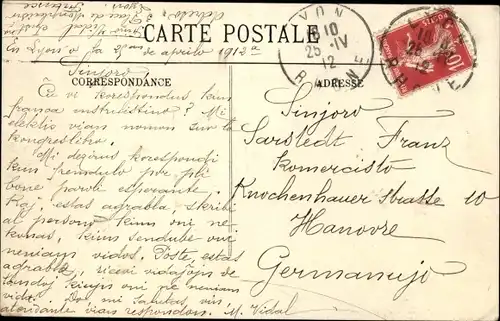 CARTE POSTALE
LYON
10
25 -IV
12
RHONE
POSTES
10
En Lyono la 25an de aprilo 1912a
CORRESPONDANCE
ADRESSE
Sinjoro
Ĉu vi korespondus kun
Mi
elektis vian nomon sur la
kongreslibro.
Mi deziras korespondi
kun por pli
bone paroli esperante.
Kaj, estas agrabla, skribi
al personoj kiuj oni ne
konas, kiuj sendube oni
neniam vidos. Poste, estas
agrabla, ricevi vidaĵojn de
landoj kiujn oni ne neniam
vidis. Don mi salutas vin
atendante viajn respondojn. M. Vidal
Sinjoro
Sarstedt Franz
komercisto
Knochenhauer strasse 10
Hanovre
Germanujo